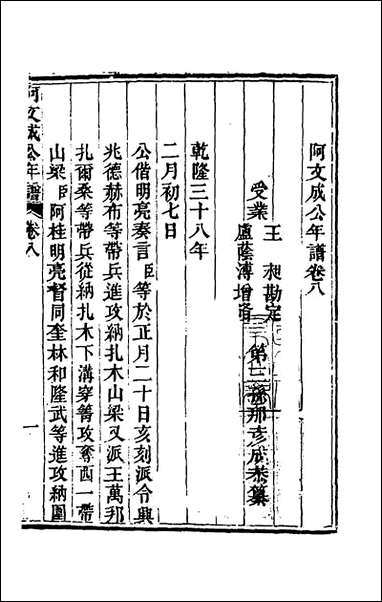 阿文成公年譜卷八
第三孫那彥成恭纂
受業
王昶勘定
盧蔭溥增修
乾隆三十八年
二月初七日
公偕明亮奏言臣等於正月二十日亥刻派令興
兆德赫布等帶兵進攻納扎木山梁又派王萬邦
扎爾桑等帶兵從納扎木下溝穿箐攻奪西一帶
山梁臣阿桂明亮督同奎林和隆武等進攻納圍
阿文成公年譜
卷八
一